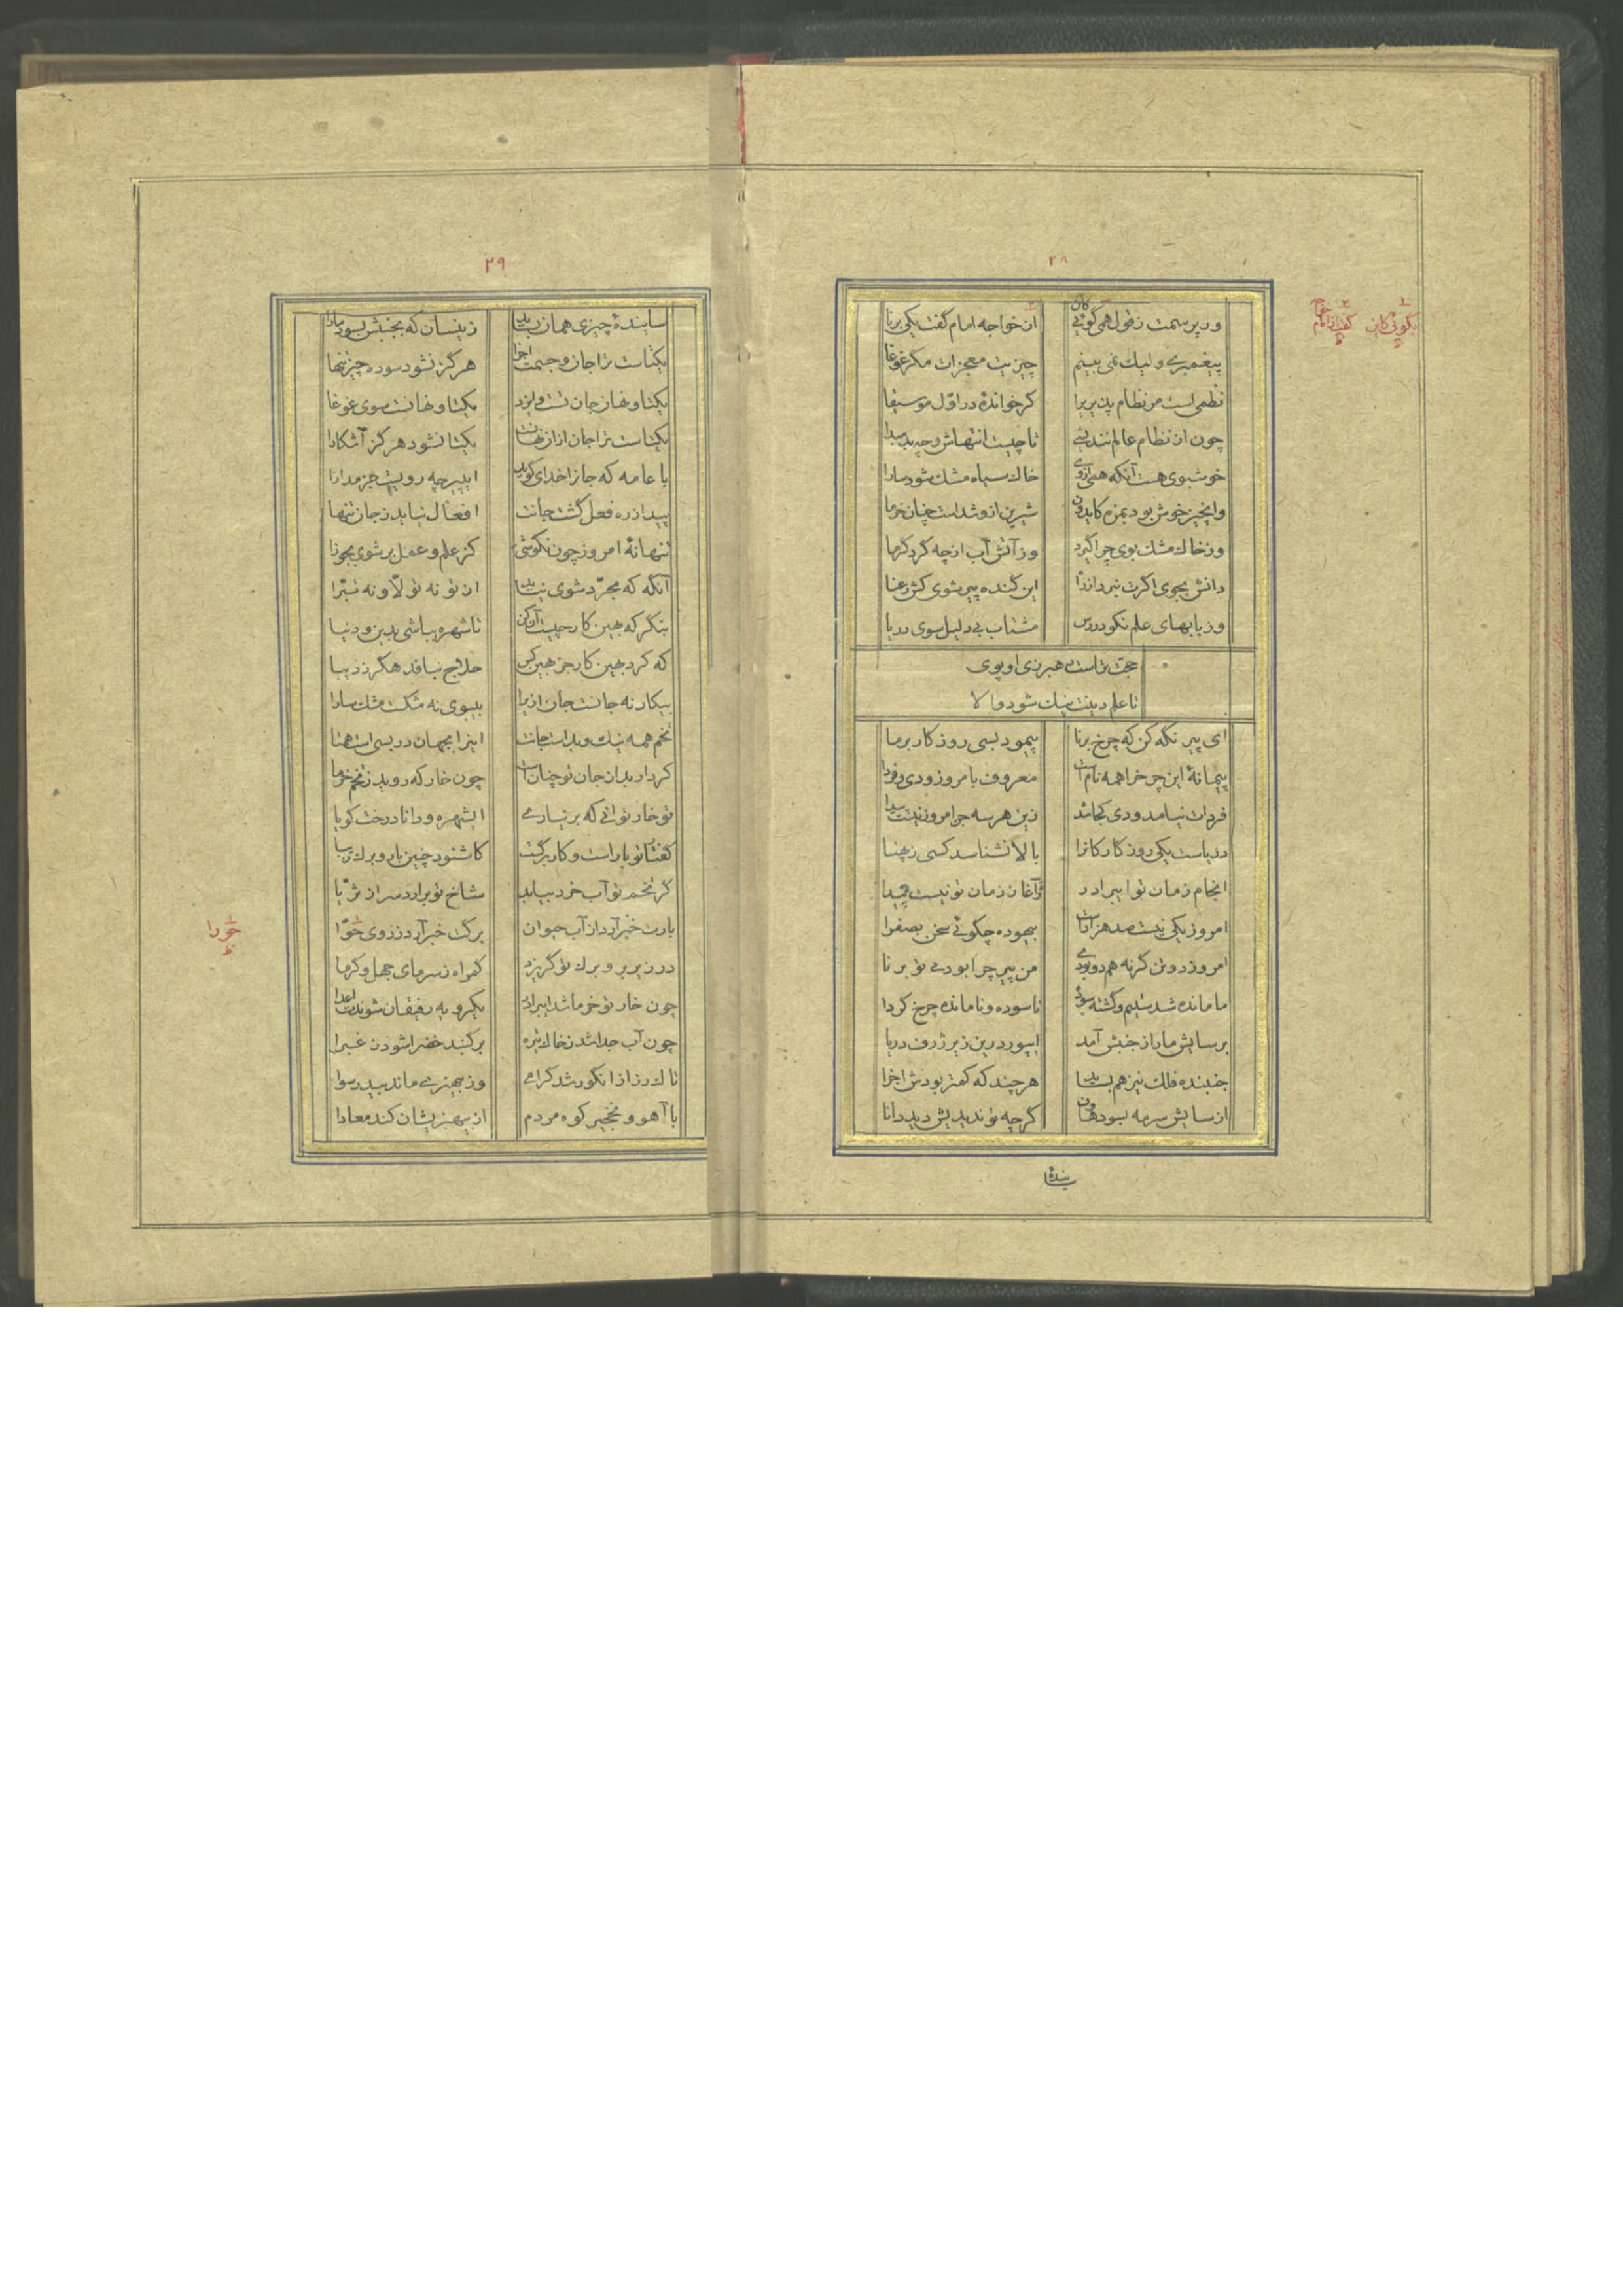 ۲۸
ور پرسمت ز قول همی گوئی کان
ان خواجه امام گفت یکی برنا
پیغمبرے ولیك نمی بینم
چیزیت معجزات مکر غوغا
نظمی است مر نظام پذیر یرا
کر خواندهٔ در اوّل موسیقا
چون از نظام عالم نندیشی
تا چیست انتهاش و چه بد مبدا
خوشبوی هست آنکه همی از وی
خاك سیاه مشك شود سارا
وانچیز خوش بود بمزه کاید زو
شیرین ازو شداست چنان خرما
وز خاك مشك بوی چرا گیرد
وز آتش آب از چه کرد گرما
دانش بجوی اکرت نبرد از راه
این گنده پیر شوی کش رعنا
وز بابهای علم نکو در رس
مشتاب بی دلیل سوی دریا
حجت تراست رهبر زی او پوی
تا علم دینت نیك شود والا
ای پیر نگه کن که چرخ برنا
پیمود بسی روزکار بر ما
پیمانهٔ این چرخ را سه نام است
معروف بامروز و دی و فردا
فردات نیامد و دی کجا شد
زین هر سه جز امروز نیست پیدا
دریاست یکی روزکار کانرا
بالا نشناسد کسی ز پهنا
انجام زمان تو ای برادر
آغاز زمان تو نیست پیدا
امروز یکی نیست صد هزارست
بیهوده چکوئی سخن بصفرا
امروز دو تن گر نه هم دو بودی
من پیر چرا بودمی تو برنا
ما مانده شدستیم و گشته سوده
ناسوده و نامانده چرخ کردا
برسایش ما را ز جنبش آمد
ایپور درین زیر ژرف دریا
جنبنده فلك نیز هم بساید
هر چند که کمتر بودش اجزا
از سایش سرمه بسود هاون
گر چه تو ندیدیش دید دانا
سایندهٔ
بکوئی کان
گفت یکی امام
۲۹
سایندهٔ چیزی همان بساید
زینسان که بجنبش بسود مارا
یکتاست ترا جان و جسمت اجزا
هرگز نشود سوده چیز تنها
یکتا و نهان جان تست و ایزد
یکتا و نهانست سوی غوغا
یکتاست ترا جان ازان نهانست
یکتا نشود هرگز آشکارا
با عامه که جانرا خدای گوید
ای پیر چه رویست جز مدارا
پیدا ز ره فعل گشت جانت
افعال نیاید ز جان تنها
تنها نهٔ امروز چون نکوشی
کز علم و عمل بر شوی بجوزا
آنگه که مجرّد شوی نیاید
از تو نه تولّا و نه تبرّا
بنگر که بهین کار چیست آن کن
تا شهره بباشی بدین و دنیا
که کرد بهین کار جز بهین کس
حلاج نبافد هگرز دیبا
بیکار نه جانست جان ازیرا
بیبوی نه مشکست مشك سارا
تخم همه نیك و بد است جانت
کردار بد از جان تو چنان است
چون خار که روید ز تخم خرما
تو خار توانی که بر نیارے
ایشهره و دانا درخت کویا
گفتار تو بار است و کار برگت
که شنود چنین بار و برك زیبا
گر تخم تو آب خرد بیابد
شاخ تو برارد سر از ثرّیا
بارت خبر آرد از آب حیوان
برگت خبر آرد ز روی حوّا
در زیر بر و برك تو گریزد
گمراه ز سرمای جهل و گرما
چون خار تو خرما شد ای برادر
یکرویه رفیقان شوندت اعدا
چون آب جدا شد ز خاك تیره
بر گنبد خضرا شود ز غبرا
تاك رز از انگور شد گرامی
وز بیهنری ماند بید رسوا
با آهو و نخجیر کوه مردم
از بیهنریشان کند معادا